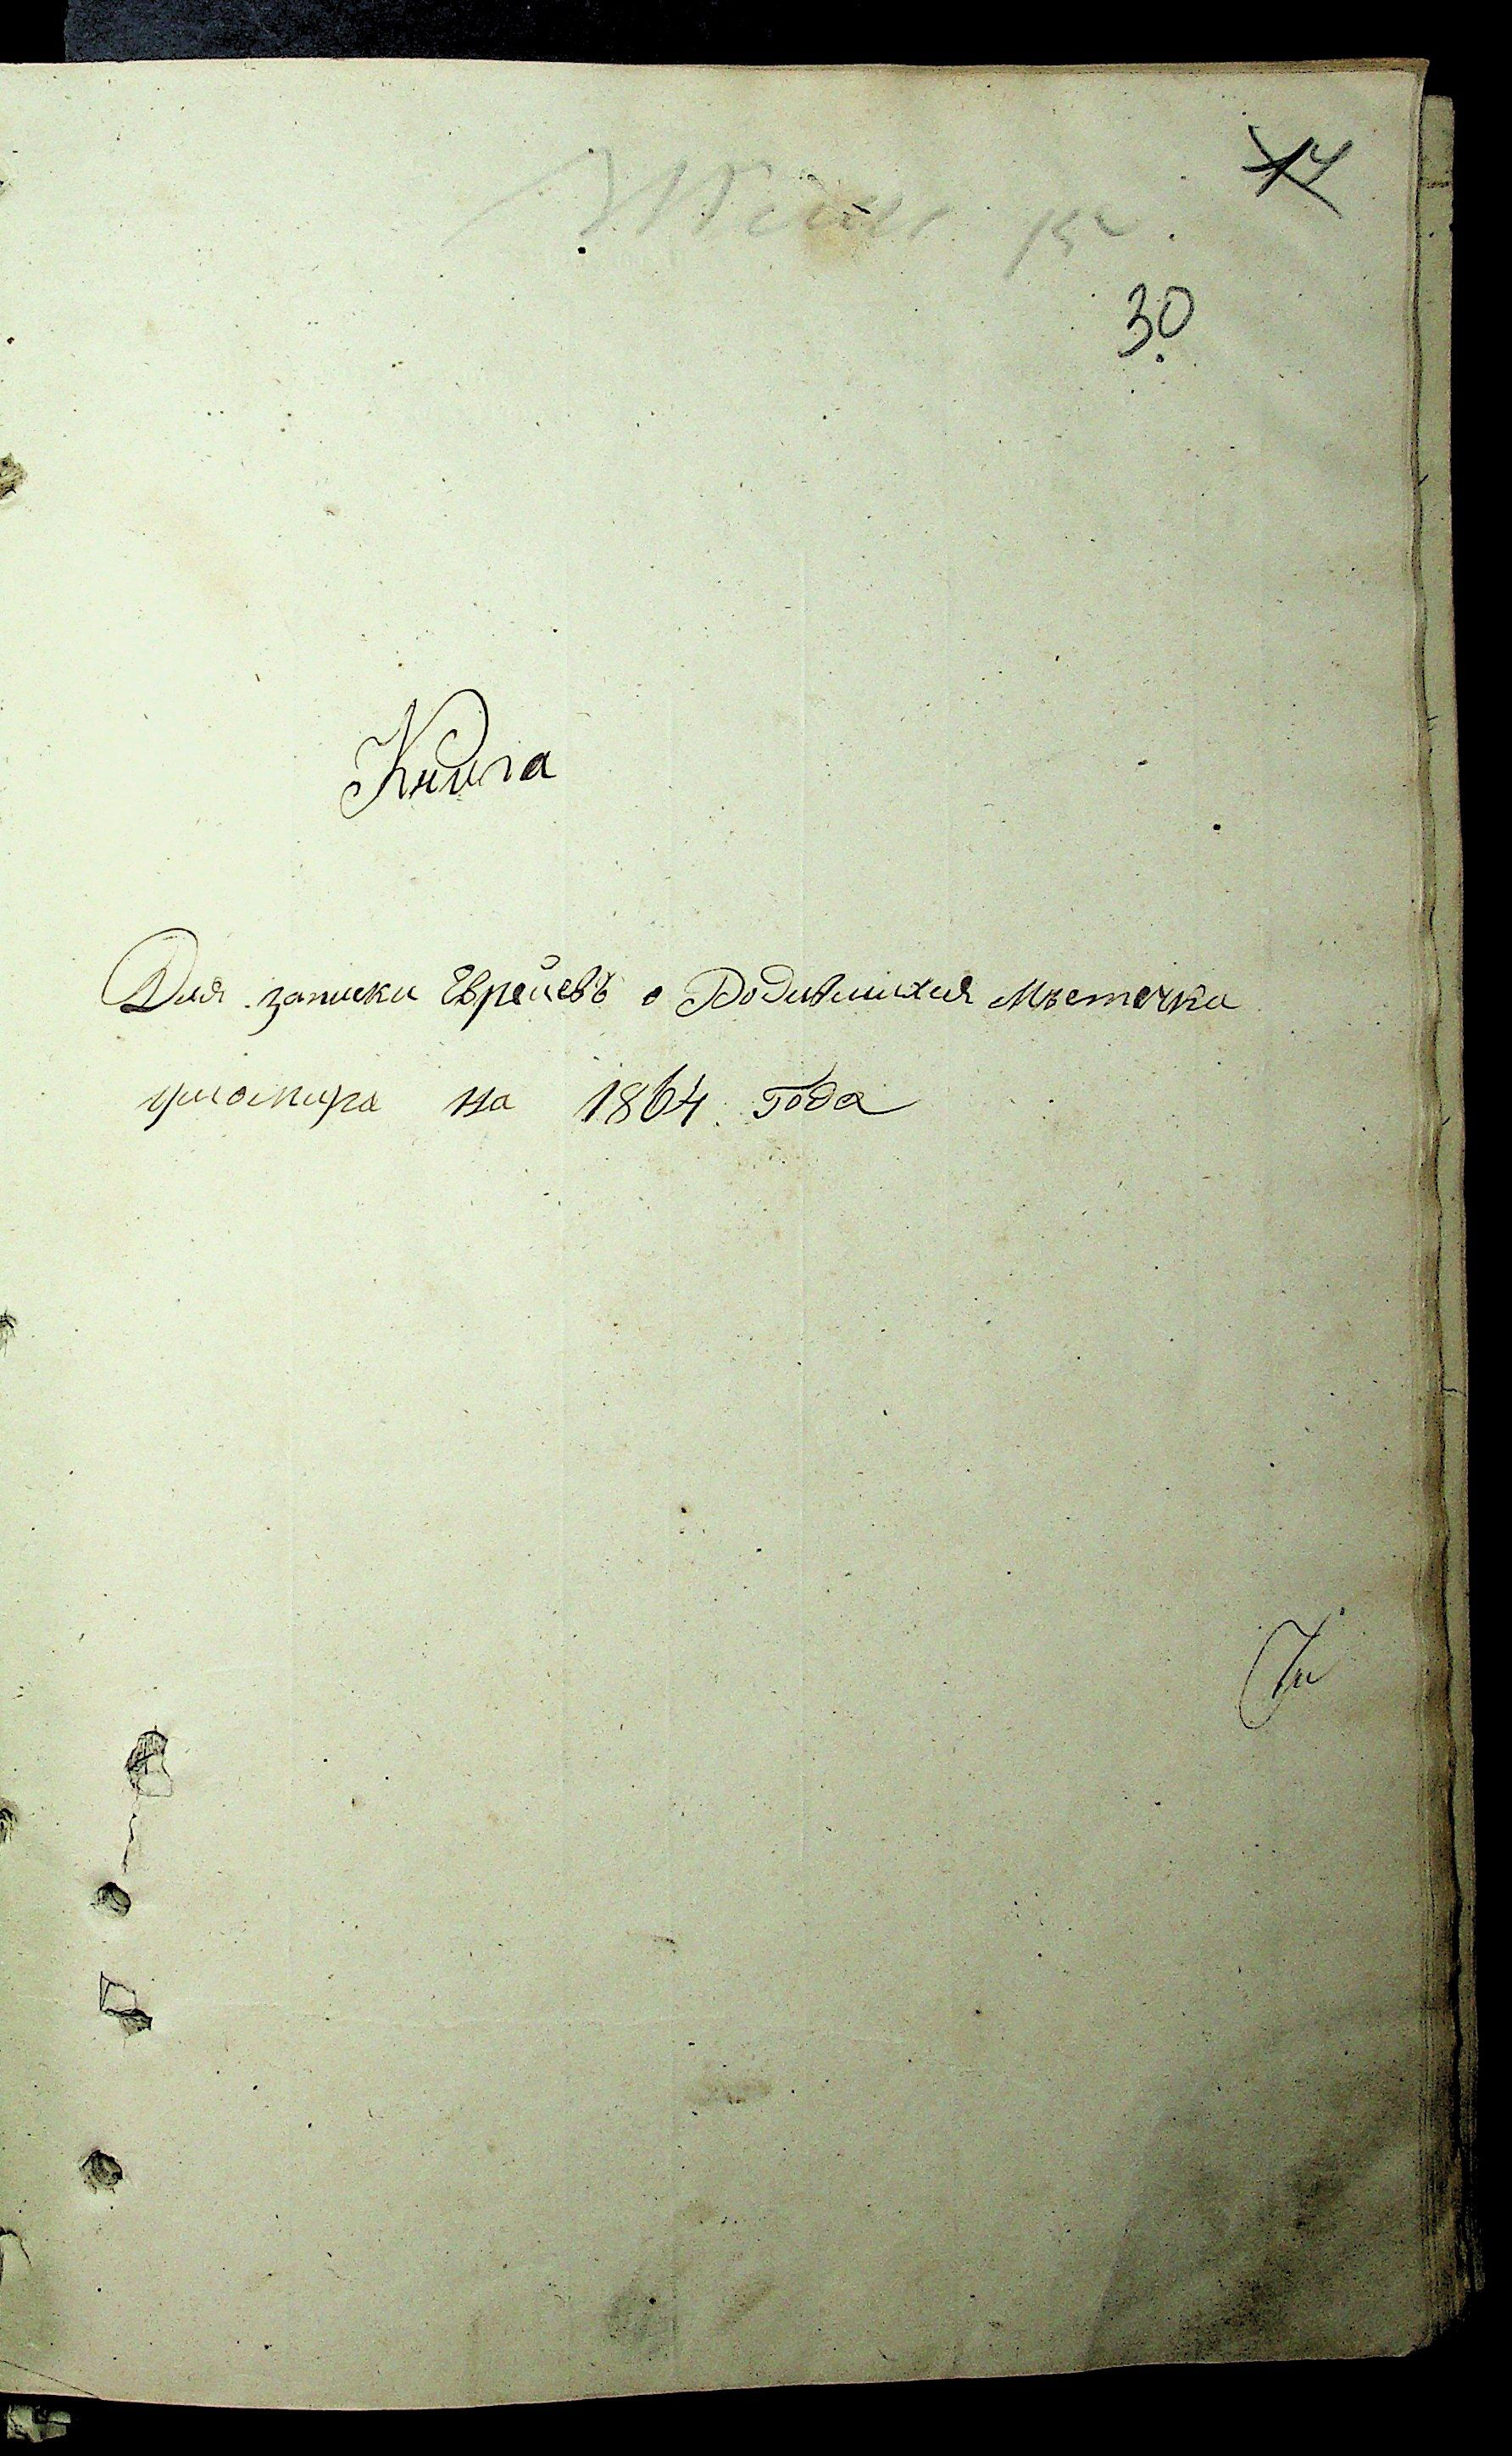 14
30
Книга
Для записки Евреевъ о Родившихся Мѣстечка
на 1864 года